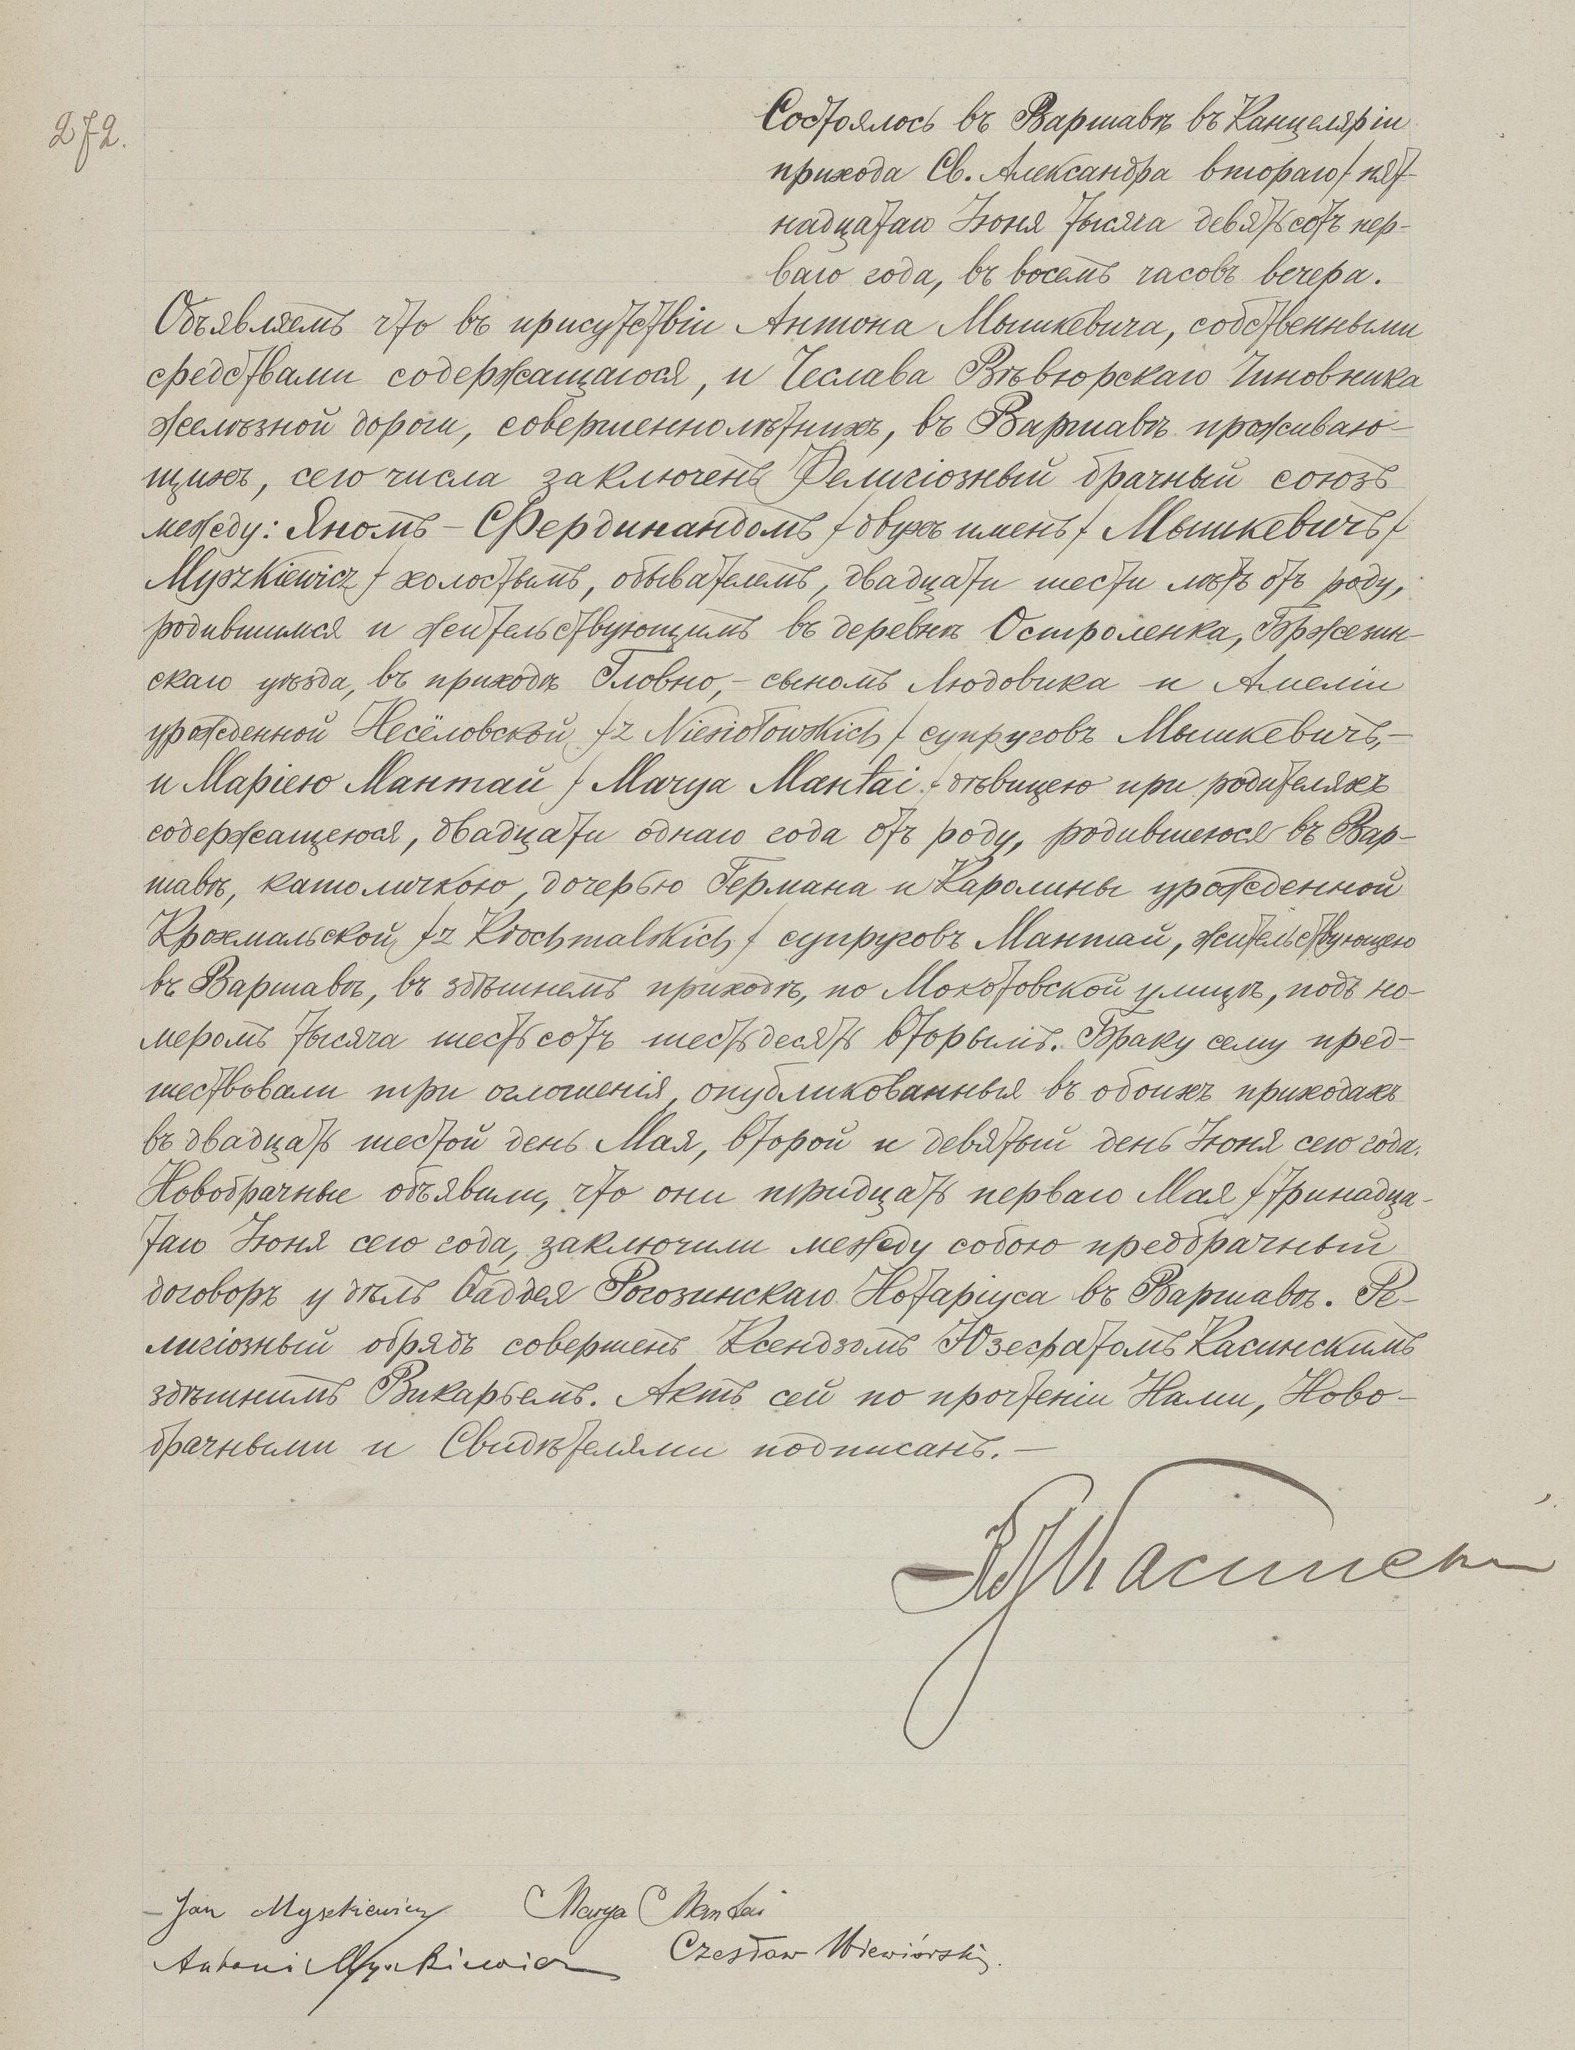 272.
Состоялось въ Варшавѣ въ Канцеляріи
прихода Св. Александра втораго / пят-
надцатаго Іюня тысяча девятьсотъ пер-
ваго года, въ восемь часовъ вечера.
Объявляемъ что въ присутствіи Антона Мышкевича, собственными
средствами содержащагося, и Чеслава Вѣвюрскаго Чиновника
желѣзной дороги, совершеннолѣтнихъ, въ Варшавѣ проживаю-
щихъ, сего числа заключенъ Религіозный брачный союзъ
между: Яномъ – Фердинандомъ / двухъ именъ / Мышкевичъ /
Myszkiewicz / холостымъ, обывателемъ, двадцати шести лѣтъ отъ роду,
родившимся и жительствующимъ въ деревнѣ Остроленка, Бржезин-
скаго уѣзда, въ приходѣ Гловно, – сыномъ Людовика и Амеліи
урожденной Несёловской / z Niesiołowskich / супруговъ Мышкевичъ, –
и Маріею Мантай / Marya Mantai / дѣвицею при родителяхъ
содержащеюся, двадцати однаго года отъ роду, родившеюся въ Вар-
шавѣ, католичкою, дочерью Германа и Каролины урожденной
Крохмальской / z Krochmalskich / супруговъ Мантай, жительствующею
въ Варшавѣ, въ здѣшнемъ приходѣ, по Мокотовской улицѣ, подъ но-
меромъ тысяча шестьсотъ шестьдесятъ вторымъ. Браку сему пред-
шествовали три оглошенія, опубликованныя въ обоихъ приходахъ
въ двадцать шестой день Мая, второй и девятый день Іюня сего года.
Новобрачные объявили, что они тридцать перваго Мая / тринадца-
таго Іюня сего года, заключили между собою предбрачный
договоръ у дѣлъ Фаддея Рогозинскаго Нотаріуса въ Варшавѣ. Ре-
лигіозный обрядъ совершенъ Ксендзомъ Юзефатомъ Касинскимъ
здѣшнимъ Викарьемъ. Актъ сей по прочтеніи Нами, Ново-
брачными и Свидѣтелями подписанъ. –
Кс Ю Касински
Jan Myszkiewicz Marya Mantai
Antoni Myszkiewicz Czesław Wiewiórski.